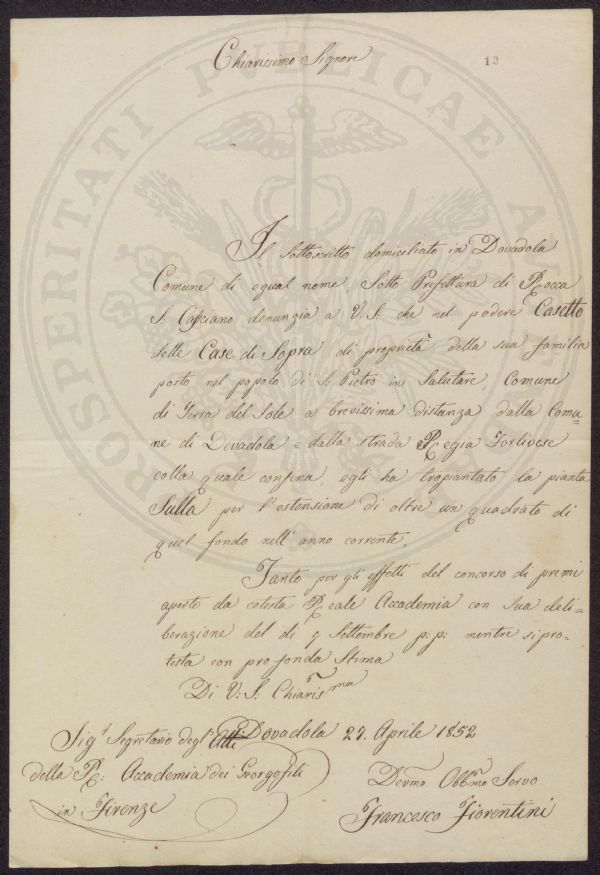 Chiarissimo Signore
13
PROSPERITATI PUBLICAE A
Il sottoscritto domiciliato in Dovadola
Comune di egual nome Sotto Prefettura di Rocca
S: Casciano denunzia a V: S: che nel podere Casetto
delle Case di Sopra di proprietà della sua familia
posto nel popolo di S. Pietro in Salutare, Comune
di Terra del Sole a brevissima distanza dalla Comu=
ne di Dovadola e dalla strada Regia Forlivese
colla quale confina, egli ha tropiantato la pianta
Sulla per l'estensione di oltre un quadrato di
quel fondo nell'anno corrente.
Tanto per gli effetti del concorso di premi
aperto da cotesta Reale Accademia con sua deli=
berazione del di 7 Settembre p: p: mentre si pro=
testa con profonda stima
Di V: S: Chiaris^ma
Dovadola 27. Aprile 1852
Sig^r Segretario degl' Atti
della R: Accademia dei Georgofili
in Firenze
Devmo Obbmo Servo
Francesco Fiorentini